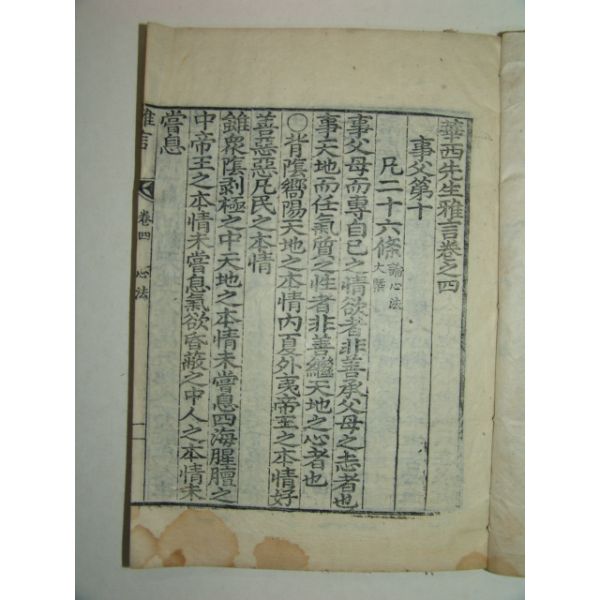 華西先生雅言卷之四
事父第十
凡二十六條 論心法大槩
事父母而專自己之情欲者非善承父母之志者也
事天地而任氣質之性者非善繼天地之心者也
○背陰嚮陽天地之本情內夏外夷帝王之本情好
善惡惡凡民之本情
雖衆陰剥極之中天地之本情未嘗息四海腥膻之
中帝王之本情未嘗息氣欲昏蔽之中人之本情未
嘗息
雅言 卷四 心法 一